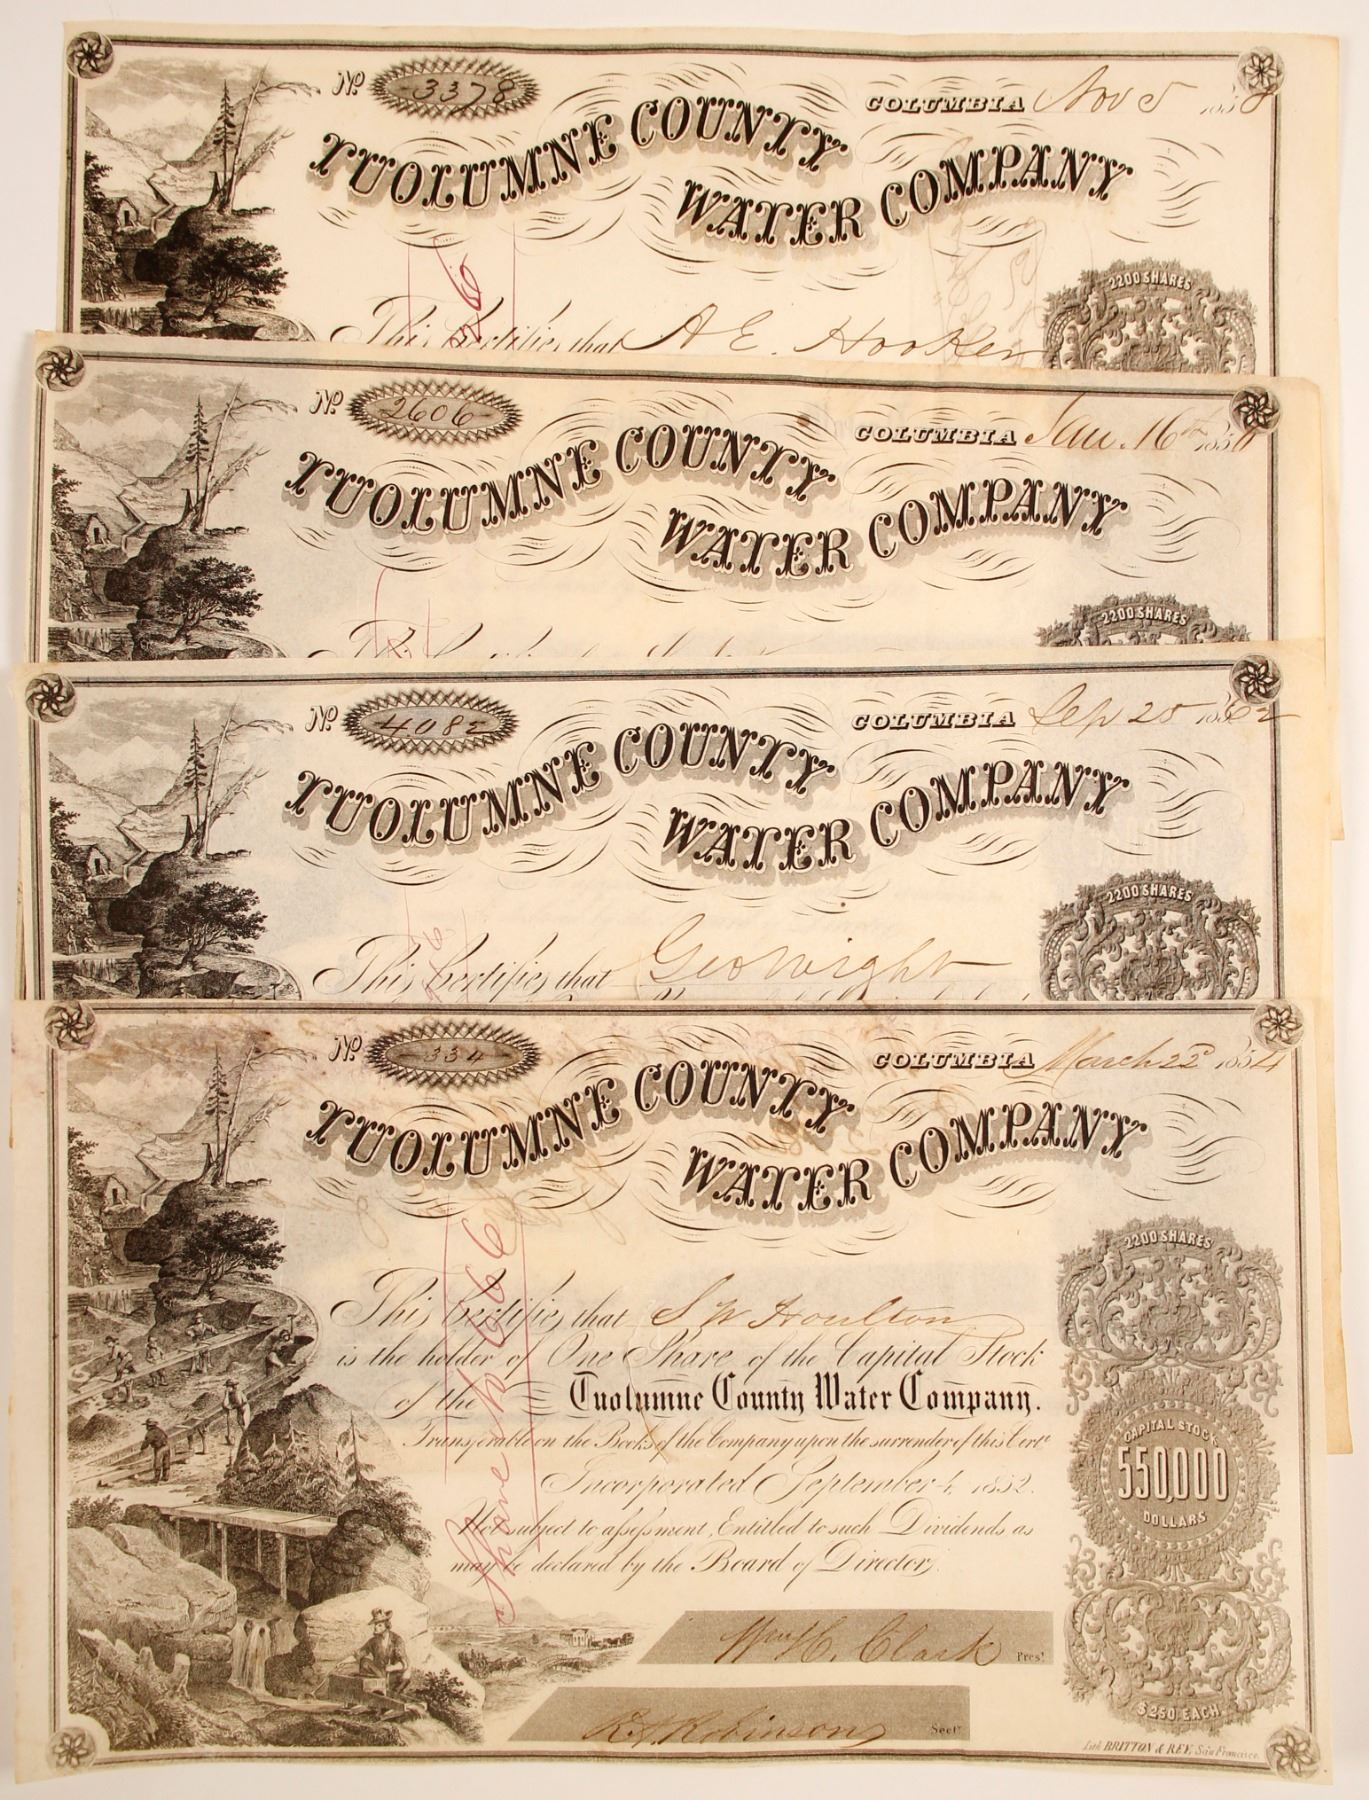 No 3378
COLUMBIA Nov 5 1858
TUOLUMNE COUNTY
WATER COMPANY
2200 SHARES
This Certifies that A E. Hooker
No 2606
COLUMBIA Jan. 16th 1856
TUOLUMNE COUNTY
WATER COMPANY
2200 SHARES
No 4082
COLUMBIA Sep 25 1862
TUOLUMNE COUNTY
WATER COMPANY
2200 SHARES
This Certifies that Geo Wright
No 334
COLUMBIA March 22d 1854
TUOLUMNE COUNTY
WATER COMPANY
2200 SHARES
This Certifies that S W Houlton
is the holder of One Share of the Capital Stock
of the Tuolumne County Water Company.
Transferable on the Books of the Company upon the surrender of this Certe
Incorporated September 4, 1852.
Not subject to assessment, Entitled to such Dividends as
may be declared by the Board of Directors.
Share No 666
CAPITAL STOCK
550,000
DOLLARS
$250 EACH
Wm H. Clark Prest
R A Robinson Secty
Lith BRITTON & REY, San Francisco.